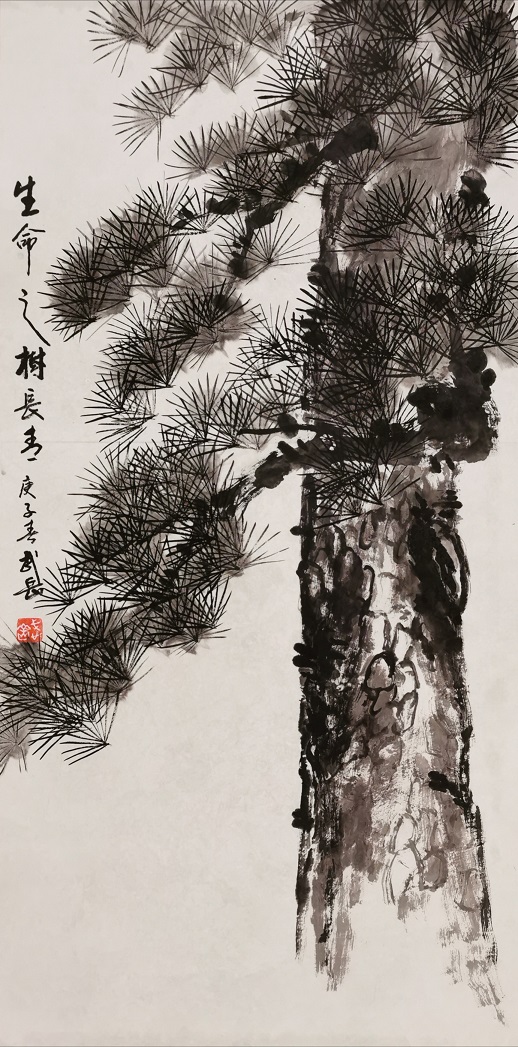 生命之樹長青 庚子春 武岳